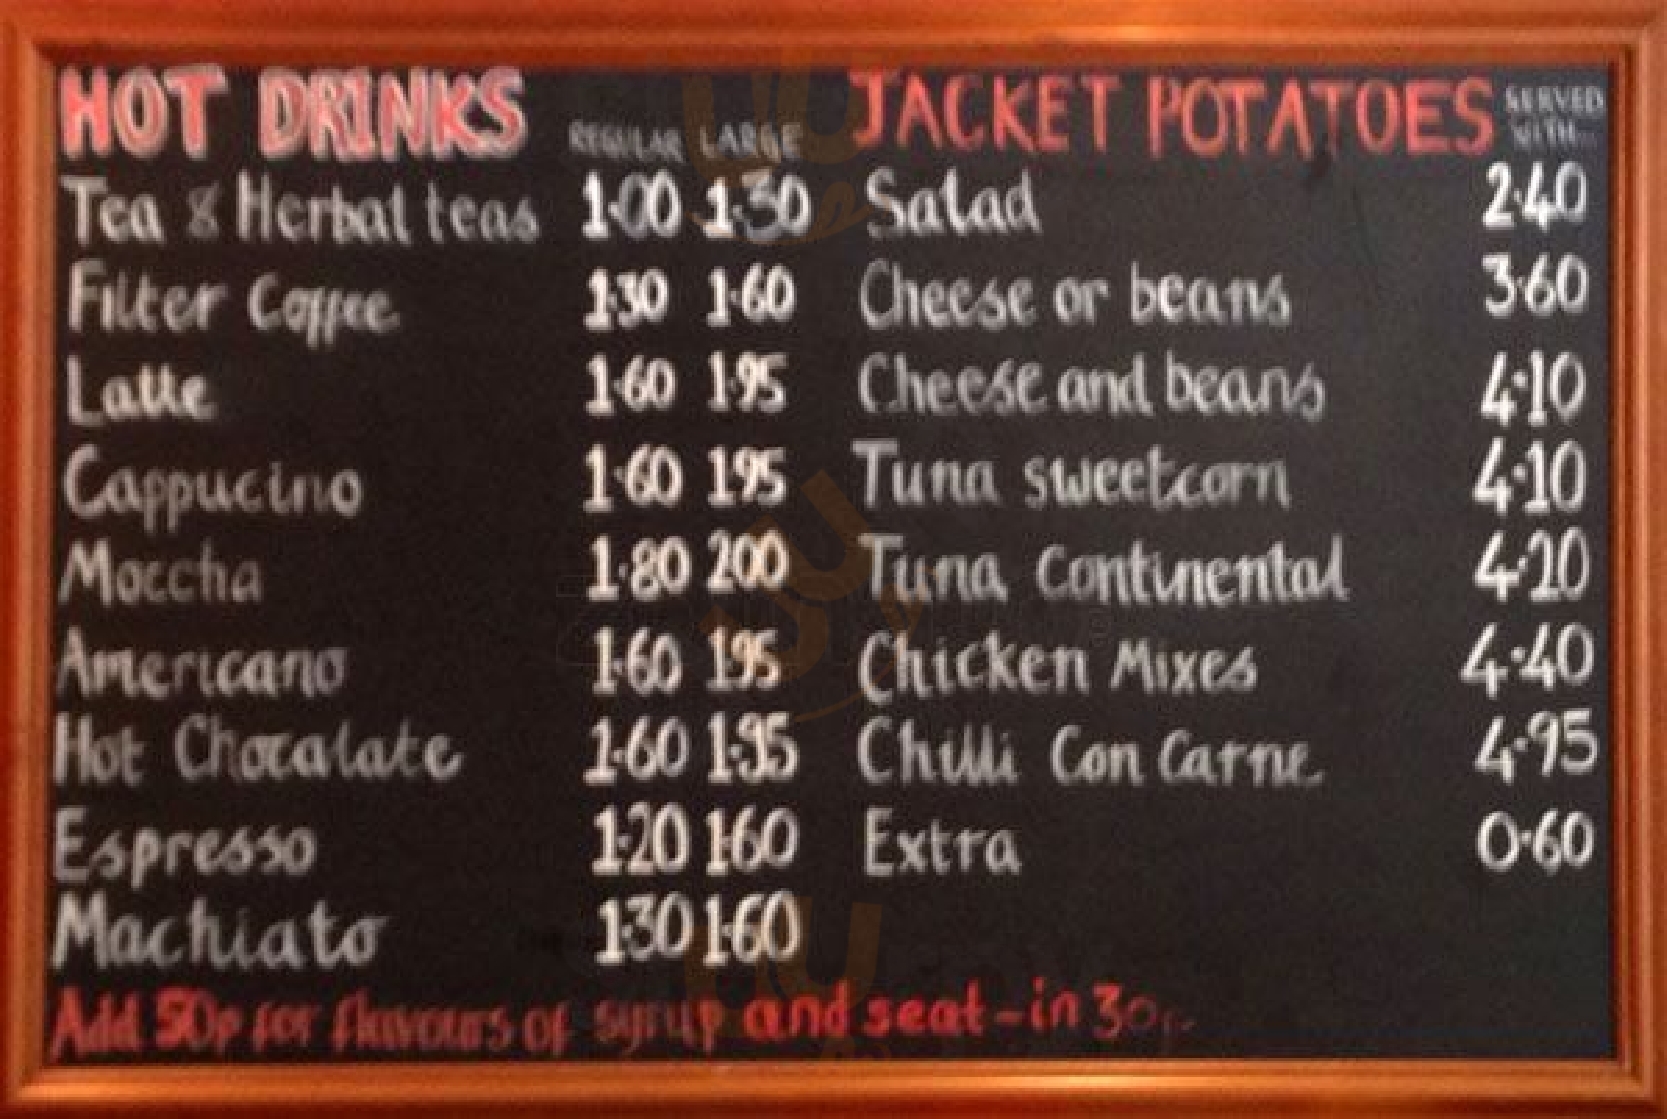 HOT DRINKS REGULAR LARGE
Tea & Herbal teas 1·00 1·30
Filter Coffee 1·30 1·60
Latte 1·60 1·95
Cappucino 1·60 1·95
Moccha 1·80 200
Americano 1·60 1·95
Hot Chocalate 1·60 1·95
Espresso 1·20 1·60
Machiato 1·30 1·60
JACKET POTATOES SERVED WITH...
Salad 2·40
Cheese or beans 3·60
Cheese and beans 4·10
Tuna sweetcorn 4·10
Tuna Continental 4·20
Chicken Mixes 4·40
Chilli Con Carne 4·95
Extra 0·60
Add 50p for flavours of syrup and seat-in 30p